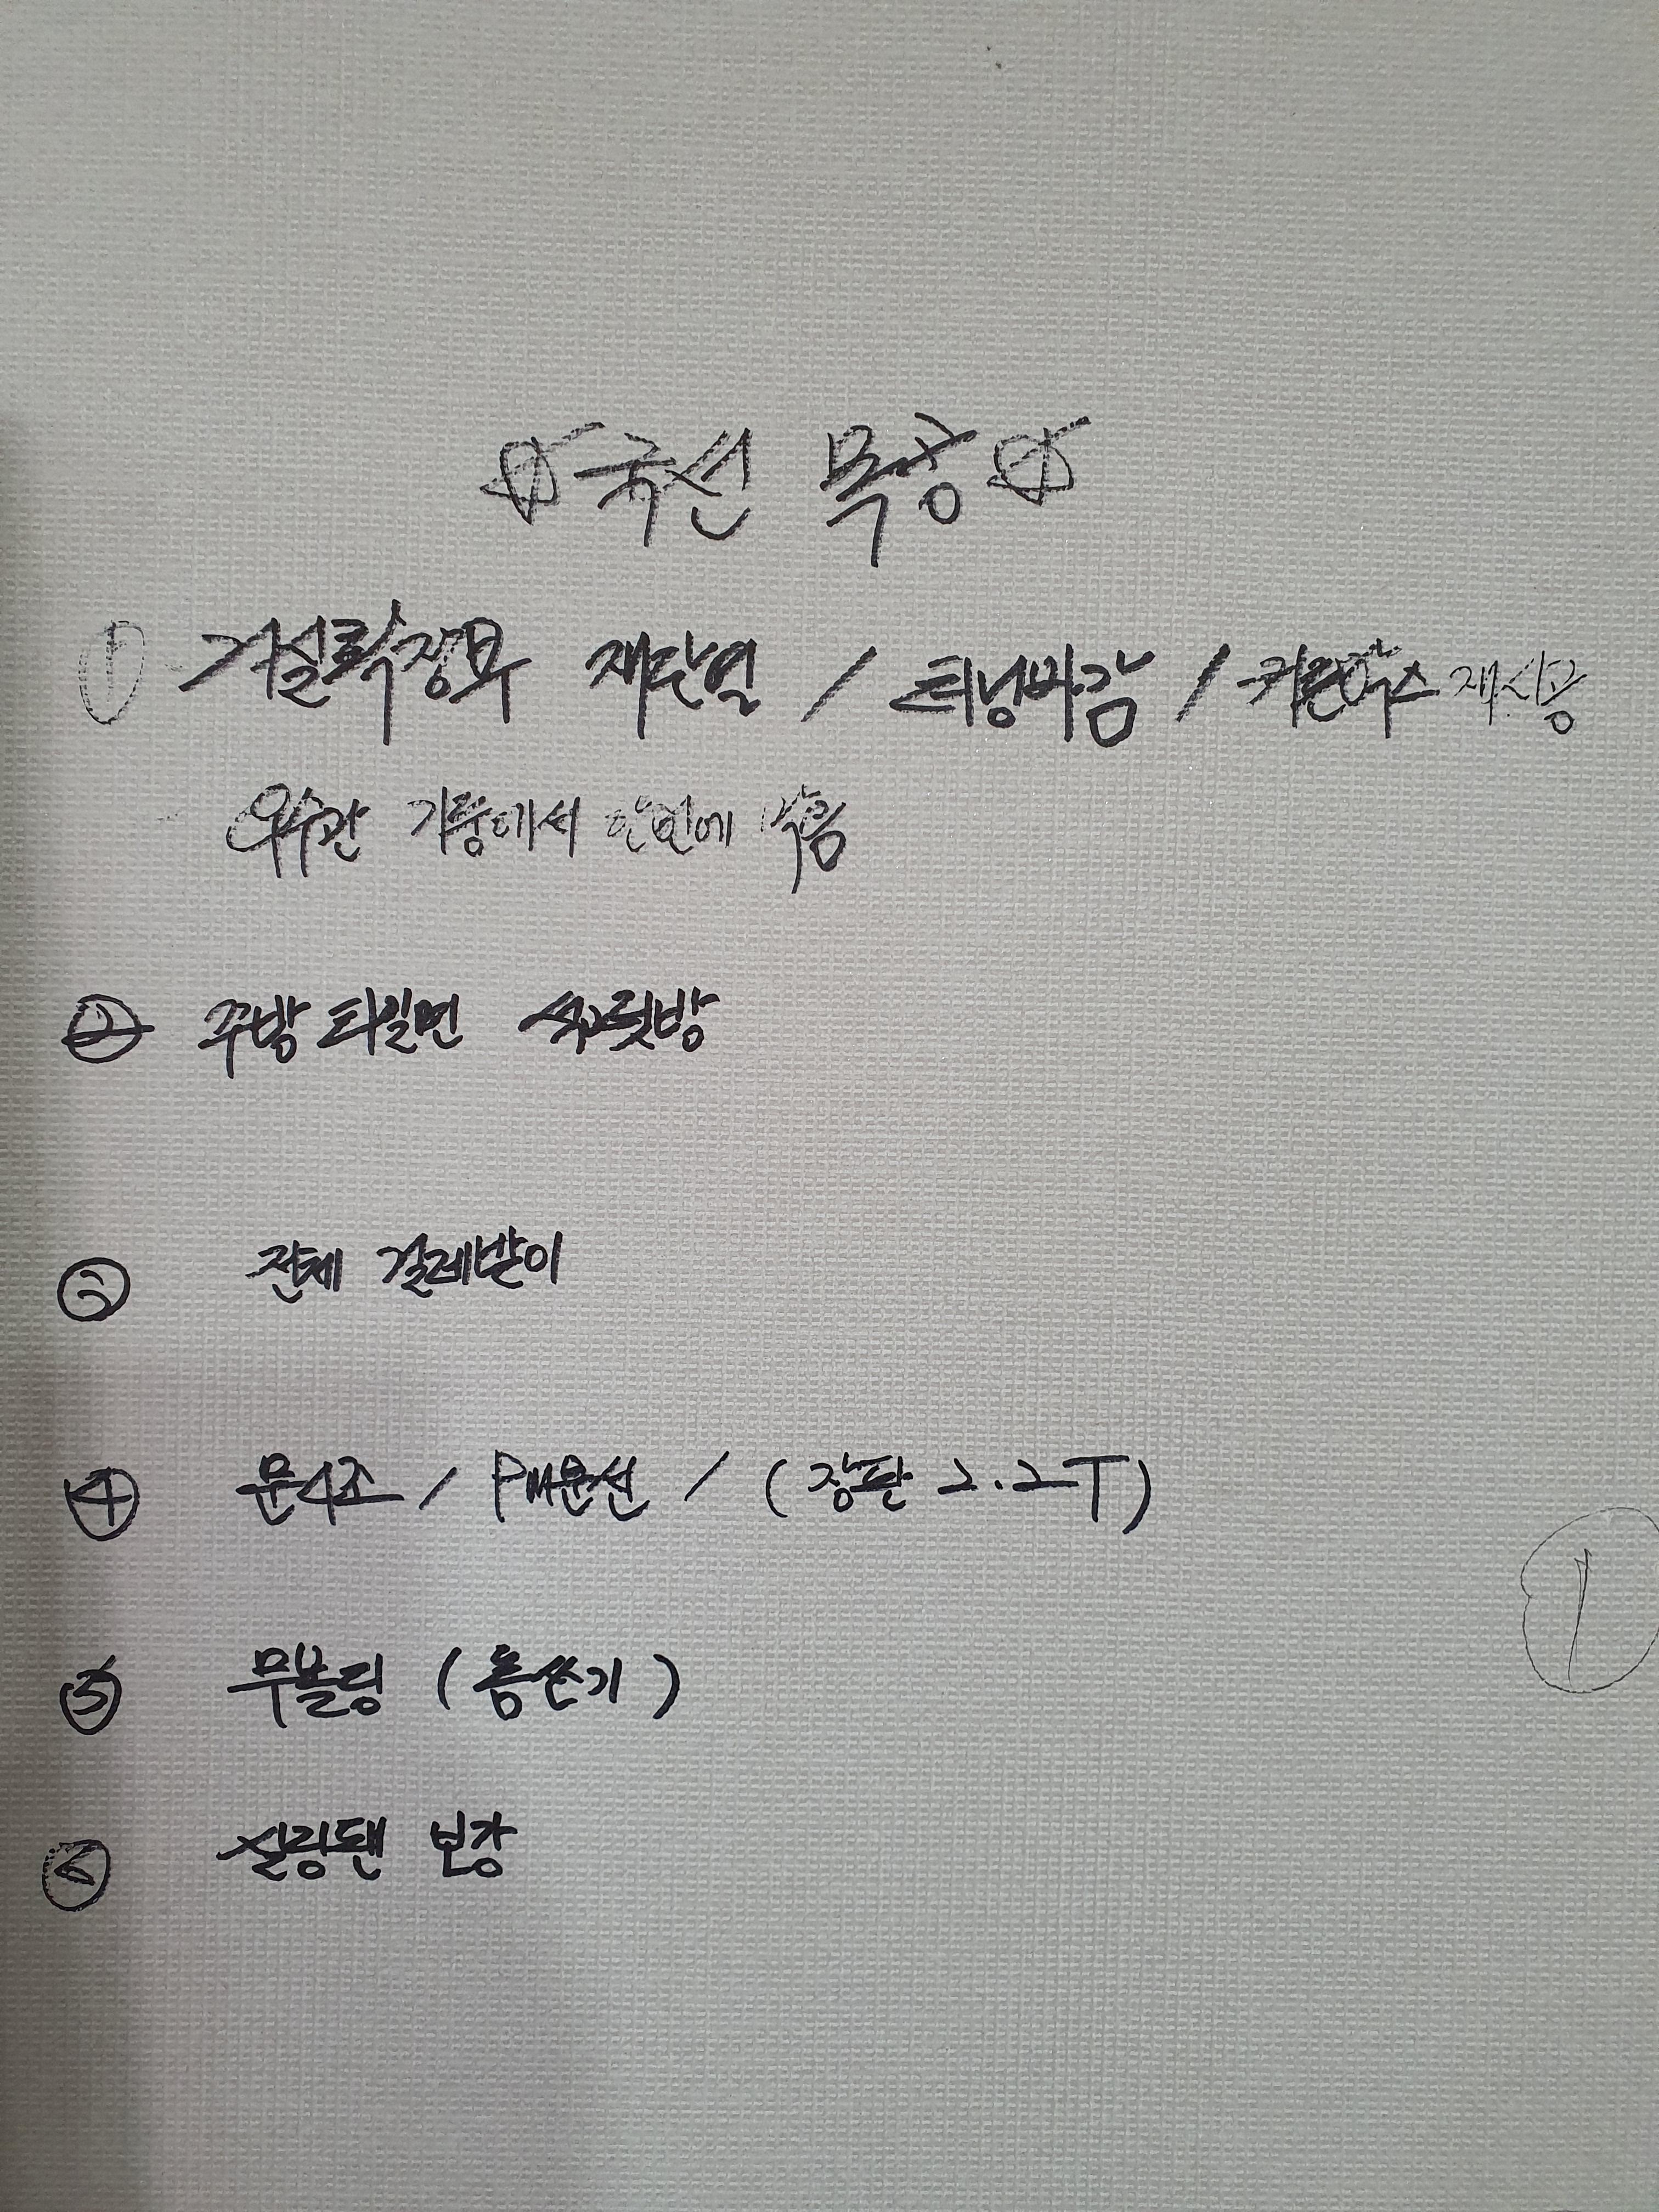 ☆국선 목공☆
① 거실확장부 재단열 / 터닝마감 / 커튼박스 재시공
우수관 기둥에서 한번에 박음
② 주방 타일면 석고텃방
③ 전체 걸레받이
④ 문4조 / PM문선 / (장판 2.2T)
⑤ 무몰딩 (톰쓰기)
⑥ 실링팬 보강
①